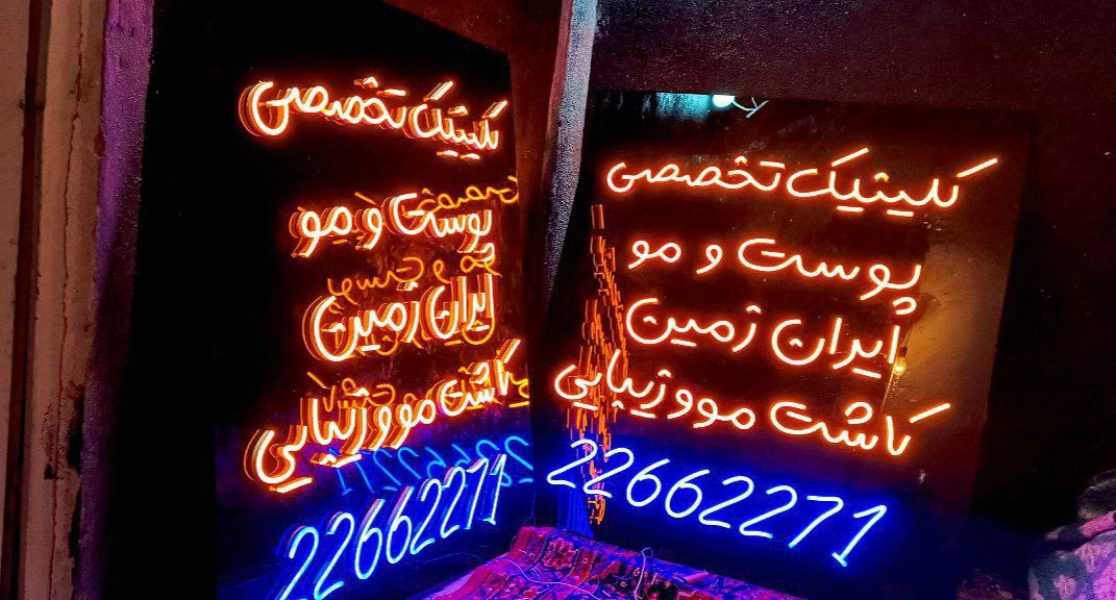 کلینیک تخصصی
پوست و مو
ایران زمین
کاشت مو و زیبایی
22662271
کلینیک تخصصی
پوست و مو
ایران زمین
کاشت مو و زیبایی
22662271